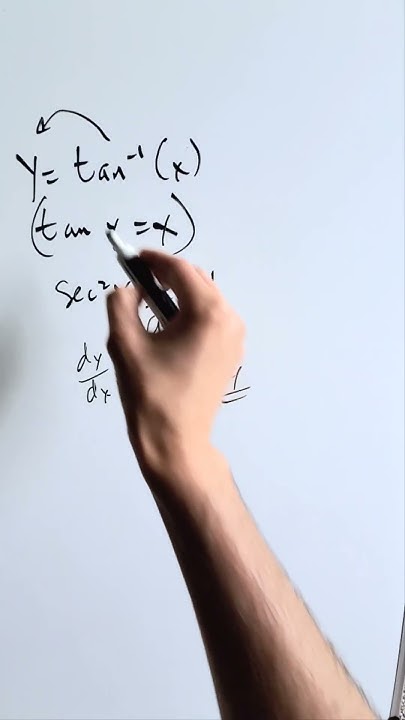 y = tan⁻¹ (x)
(tan y = x)
sec²
dy
dx